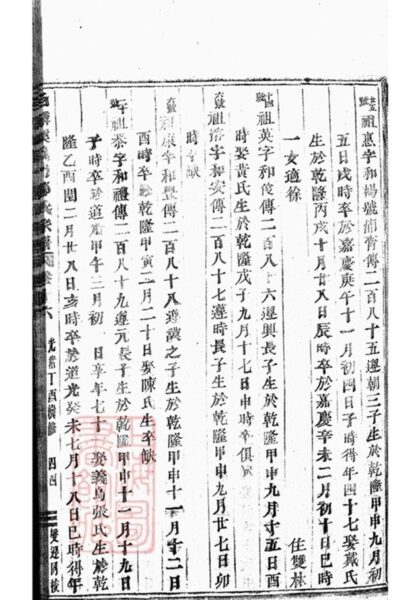 祖惠字和暢號浦齋傳二百八十五遜朝三子生於乾隆甲申九月初
五日戌時卒於嘉慶庚午十一月初四日子時得年四十七娶戴氏
生於乾隆丙戌十月廿八日辰時卒於嘉慶辛未二月初十日巳時
一女適徐 住雙林
祖英字和俊傳二百八十六遜興長子生於乾隆甲申九月十五日酉
時娶黃氏生於乾隆戊子九月十七日申時卒俱
祖字和安傳二百八十七遜時長子生於乾隆甲申九月廿七日卯
時卒缺
祖康字和豐傳二百八十八遜之子生於乾隆甲申十一月十二日
酉時卒於乾隆甲寅二月二十日娶陳氏生卒缺
祖泰字和禮傳二百八十九遜元長子生於乾隆甲申十一月十九日
子時卒於道光甲午三月初 日享年七十 娶義烏張氏生於乾
隆乙酉閏二月廿八日亥時卒於道光癸未七月十八日巳時得年
六 光緒丁酉續修 四四